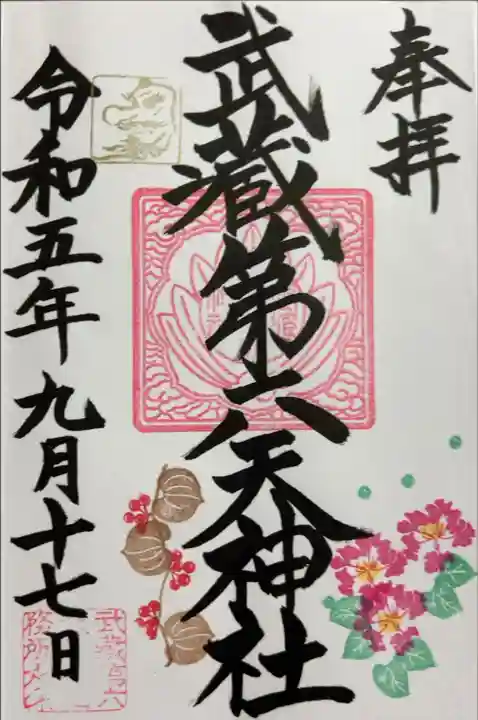 奉拝
武蔵第六天神社
令和五年九月十七日